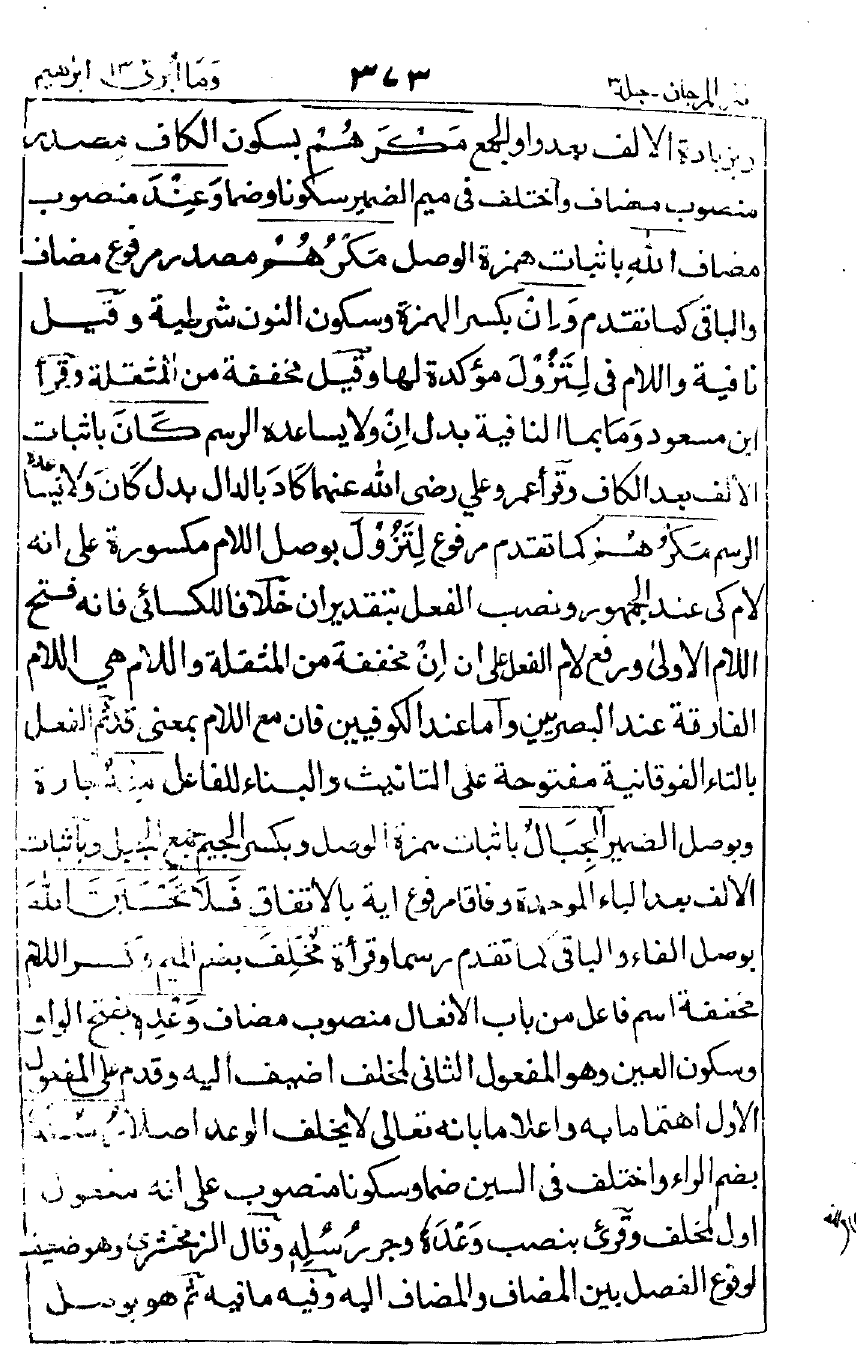 نثر المرجان - جلد ٣ ٣٧٣ وما أبرئ ١٣ ابرهيم
وبزيادة الالف بعد واو الجمع مَكْرَهُمْ بسكون الكاف مصدر
منصوب مضاف واختلف فى ميم الضمير سكونا وضما وَعِنْدَ منصوب
مضاف اللهِ باثبات همزة الوصل مَكْرُهُمْ مصدر مرفوع مضاف
والباقى كما تقدم وَإِنْ بكسر الهمزة وسكون النون شرطية وقيل
نافية واللام فى لِتَزُوْلَ مؤكدة لها وقيل مخففة من المثقلة وقرأ
ابن مسعود وَمَا بما النافية بدل اِنْ ولا يساعده الرسم كَانَ باثبات
الالف بعد الكاف وقرأ عمر وعلي رضى الله عنهما كَادَ بالدال بدل كَانَ ولا يساعده
الرسم مَكْرُهُمْ كما تقدم مرفوع لِتَزُوْلَ بوصل اللام مكسورة على انه
لام كى عند الجمهور ونصب الفعل بتقدير ان خلافا للكسائى فانه فتح
اللام الاولى ورفع لام الفعل على ان اِنْ مخففة من المثقلة واللام هي اللام
الفارقة عند البصريين وأما عند الكوفيين فان مع اللام بمعنى قد ثم الفعل
بالتاء الفوقانية مفتوحة على التانيث والبناء للفاعل مِنْهُ جارة
وبوصل الضمير الْجِبَالُ باثبات همزة الوصل وبكسر الجيم جمع الجبل وباثبات
الالف بعد الباء الموحدة وفاقا مرفوع اية بالاتفاق فَلَا تَحْسَبَنَّ اللهَ
بوصل الفاء والباقى كما تقدم رسما وقرأة مُخْلِفَ بضم الميم وكسر اللام
مخففة اسم فاعل من باب الافعال منصوب مضاف وَعْدِهِ بفتح الواو
وسكون العين وهو المفعول الثانى لمخلف اضيف اليه وقدم على المفعول
الاول اهتماما به واعلاما بانه تعالى لا يخلف الوعد اصلا رُسُلَهُ
بضم الراء واختلف فى السين ضما وسكونا منصوب على انه مفعول
اول لمخلف وقرئ بنصب وَعْدَهُ وجر رُسُلِهِ وقال الزمخشرى وهو ضعيف
لوقوع الفصل بين المضاف والمضاف اليه وفيه مافيه ثم هو بوصل